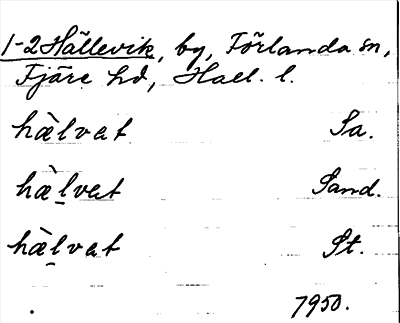 1-2 Hällevik, by, Förlanda sn,
Fjäre hd, Hall. l.
hæ̀lvat Sa.
hæ̀l̠vat Sand.
hæ̀l̠vat St.
7950.